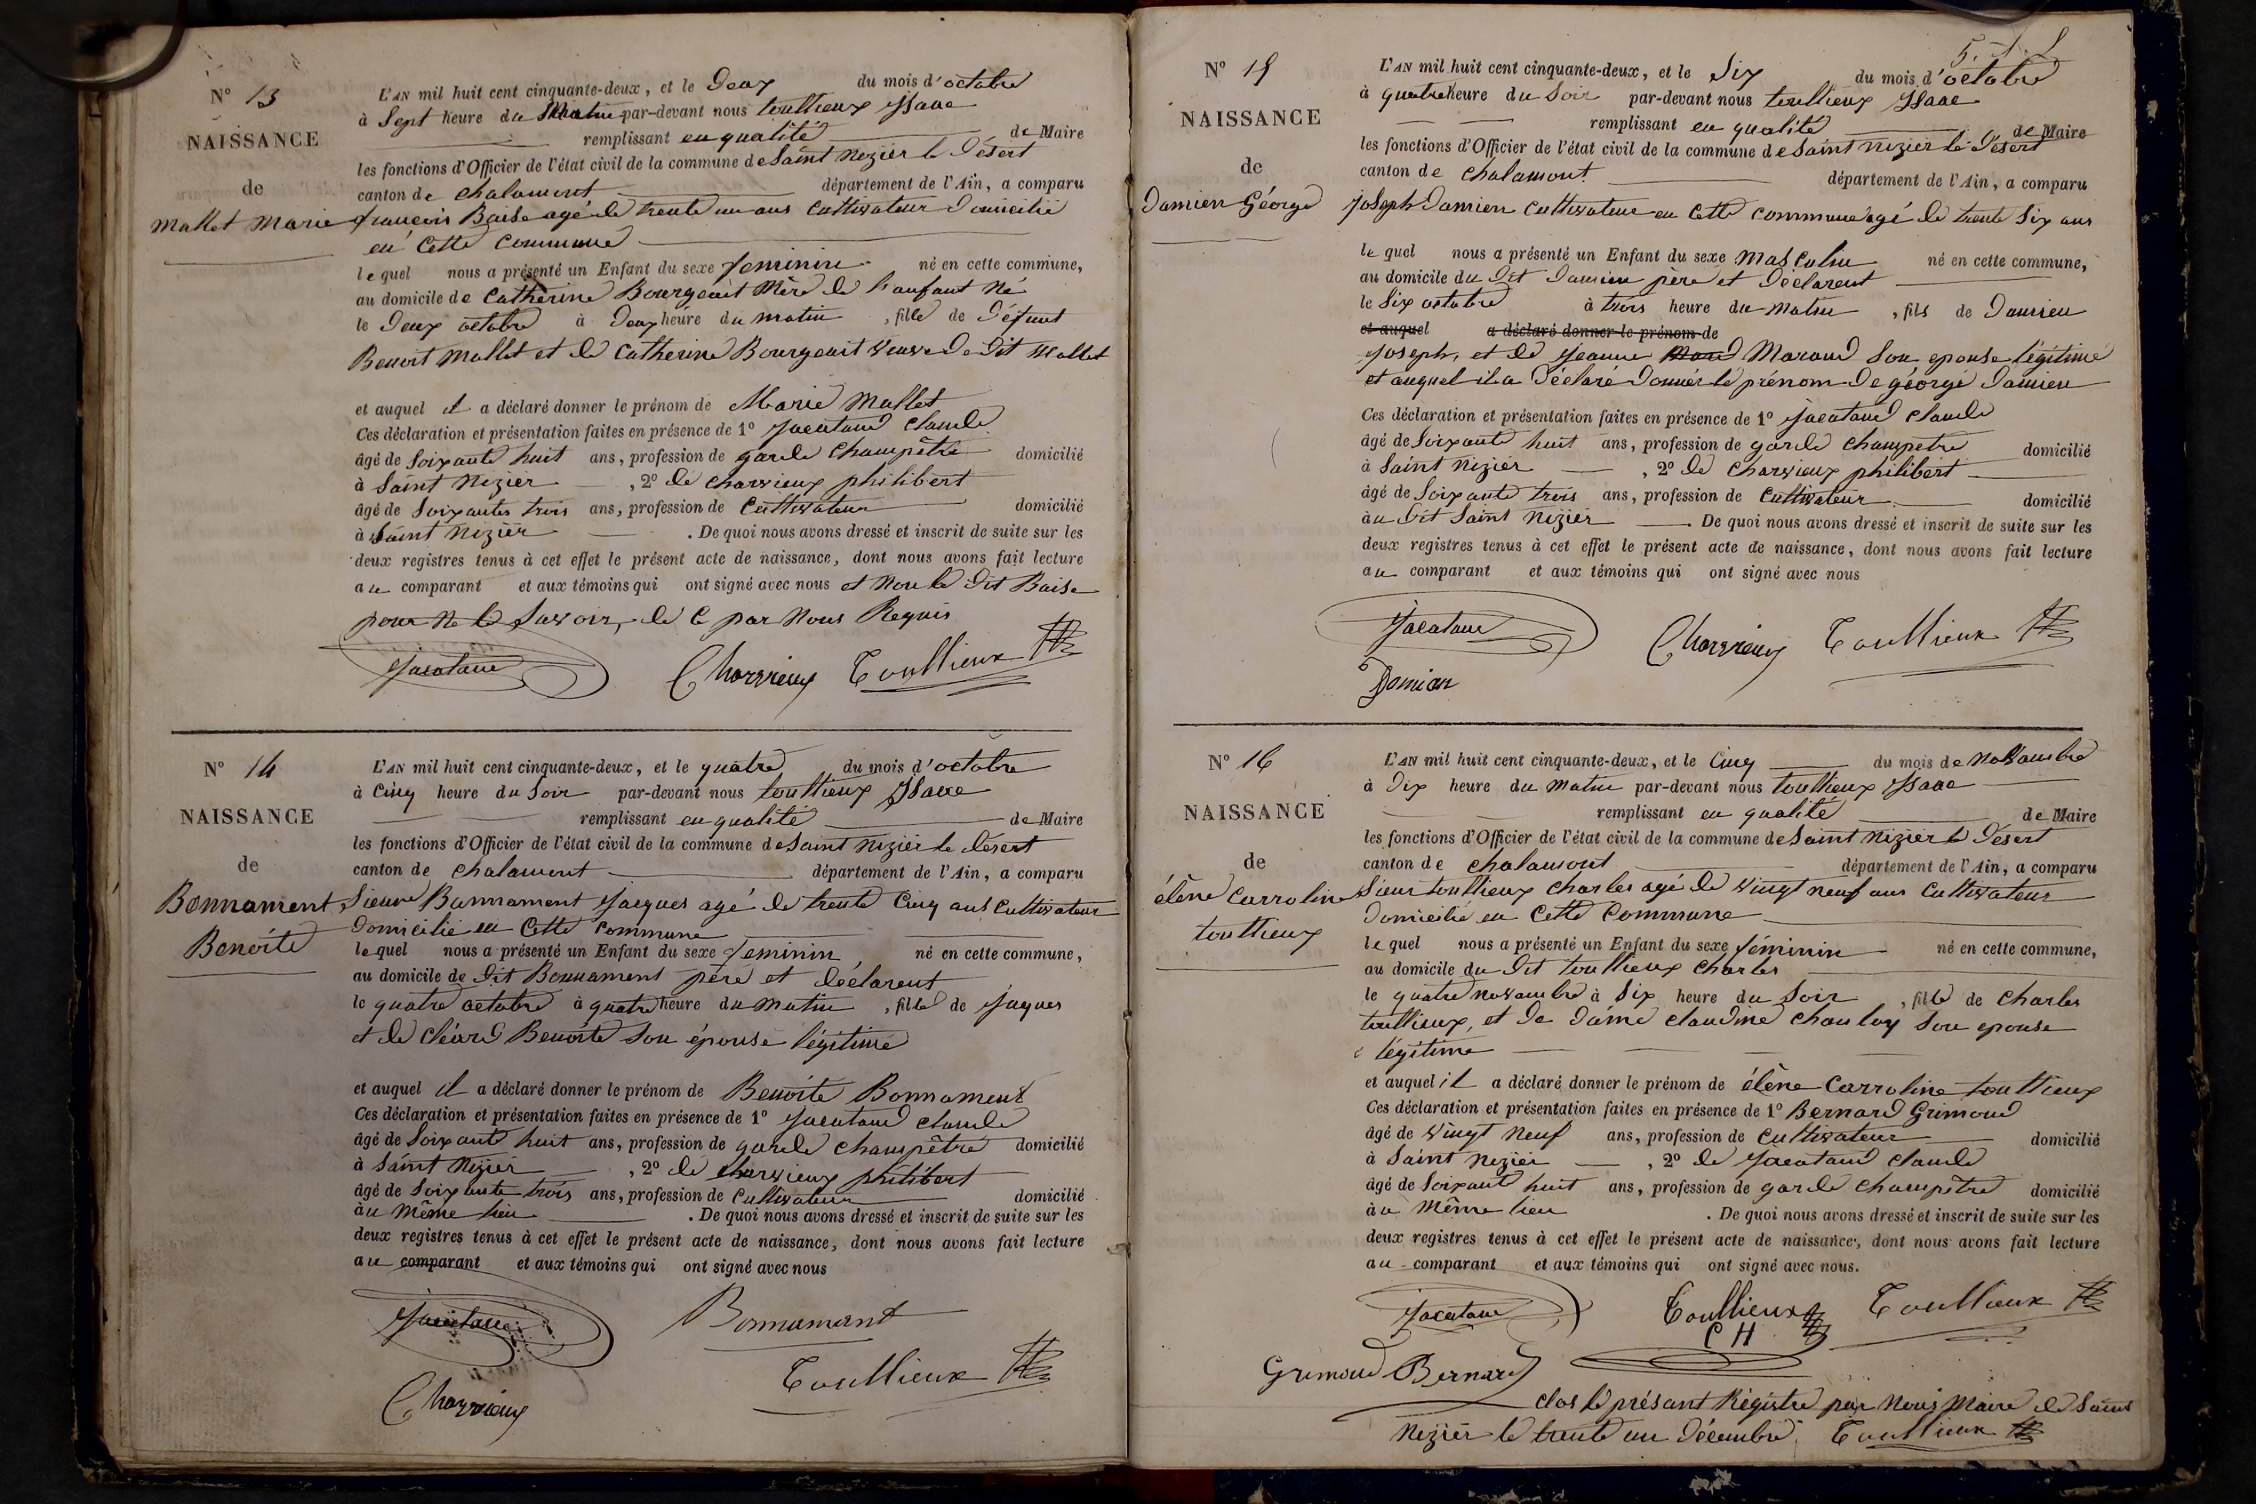 N° 13
NAISSANCE
de
Mallet Marie
L'AN mil huit cent cinquante-deux, et le Deux du mois d'octobre
à Sept heure du Matin par-devant nous toullieux Isaac
remplissant en qualité de Maire
les fonctions d'Officier de l'état civil de la commune de Saint Nezier le Désert
canton de chalamont département de l'Ain, a comparu
francois Baise agé de trente un ans cultivateur Domicilié
en cette commune
lequel nous a présenté un Enfant du sexe feminin né en cette commune,
au domicile de Catherine Bourgeait Mère de l'anfant Né
le Deux octobre à Deux heure du matin, fille de Défunt
Benoit Mallet et de Catherine Bourgeait veuve De Dit Mallet
et auquel il a déclaré donner le prénom de Marie Mallet
Ces déclaration et présentation faites en présence de 1° Jacataud claude
âgé de Soixante huit ans, profession de garde champêtre domicilié
à Saint Nezier, 2° de charvieux philibert
âgé de Soixantes trois ans, profession de Cultivateur domicilié
à Saint Nizier. De quoi nous avons dressé et inscrit de suite sur les
deux registres tenus à cet effet le présent acte de naissance, dont nous avons fait lecture
au comparant et aux témoins qui ont signé avec nous et Non le Dit Baise
pour Ne le Savoir, de C par Nous Requis
Jacataud Charvieux Toullieux
N° 14
NAISSANCE
de
Bonnament
Benoite
L'AN mil huit cent cinquante-deux, et le quatre du mois d'octobre
à Cinq heure du Soir par-devant nous toullieux Isaac
remplissant en qualité de Maire
les fonctions d'Officier de l'état civil de la commune de Saint Nizier le Désert
canton de chalamont département de l'Ain, a comparu
Sieure Bannament Jacques agé de trente Cinq ans Cultivateur
Domicilié en Cette Commune
lequel nous a présenté un Enfant du sexe feminin né en cette commune,
au domicile de Dit Bonnament père et déclarent
le quatre octobre à quatre heure du matin, fille de Jaques
et de Cléard Benoîte Son épouse légitime
et auquel il a déclaré donner le prénom de Benoite Bonnament
Ces déclaration et présentation faites en présence de 1° Jacataud claude
âgé de Soixante huit ans, profession de garde champêtre domicilié
à Saint Nizier, 2° de charvieux philibert
âgé de Soixante trois ans, profession de Cultivateur domicilié
àu Même lieu. De quoi nous avons dressé et inscrit de suite sur les
deux registres tenus à cet effet le présent acte de naissance, dont nous avons fait lecture
au comparant et aux témoins qui ont signé avec nous
Jacataud Bonnamant
Toullieux
Charvieux
N° 15
NAISSANCE
de
Damien Géorge
L'AN mil huit cent cinquante-deux, et le Six du mois d'octobre
à quatre heure du Soir par-devant nous toullieux Isaac
remplissant en qualité de Maire
les fonctions d'Officier de l'état civil de la commune de Saint Nizier le Désert
canton de chalamont département de l'Ain, a comparu
Joseph Damien Cultivateur en Cette commune agé de trente Six ans
lequel nous a présenté un Enfant du sexe Masculin né en cette commune,
au domicile du Dit Damien père et Déclarent
le Six octobre à trois heure du Matin, fils de Damien
et auquel a déclaré donner le prénom de
Joseph, et de Jeanne Maraud Son eponse légitime
et auquel il a Déclaré Donnér le prénom De géorge Damien
Ces déclaration et présentation faites en présence de 1° Jacataud claude
âgé de Soixante huit ans, profession de garde champetre domicilié
à Saint Nizier, 2° de Charvieux philibert
âgé de Soixante trois ans, profession de Cultivateur domicilié
àu Dit Saint Nizier. De quoi nous avons dressé et inscrit de suite sur les
deux registres tenus à cet effet le présent acte de naissance, dont nous avons fait lecture
au comparant et aux témoins qui ont signé avec nous
Jacataud Charvieux Toullieux
Damian
N° 16
NAISSANCE
de
élène Carroline
toullieux
L'AN mil huit cent cinquante-deux, et le Cinq du mois de Novambre
à Dix heure du Matin par-devant nous toullieux Isaac
remplissant en qualité de Maire
les fonctions d'Officier de l'état civil de la commune de Saint Nizier le Désert
canton de chalamont département de l'Ain, a comparu
Sieur toullieux Charles agé de vingt neuf ans Cultivateur
Domicilié en Cette Commune
lequel nous a présenté un Enfant du sexe féminin né en cette commune,
au domicile du Dit toullieux Charles
le quatre novambre à Six heure du Soir, fille de Charles
toullieux, et De Dáme claudine Chauloy Son eponse
légitime
et auquel il a déclaré donner le prénom de élène Carroline toullieux
Ces déclaration et présentation faites en présence de 1° Bernard Grimoud
âgé de vingt Neuf ans, profession de Cultivateur domicilié
à Saint Nezier, 2° de Jacataud claude
âgé de Soixante huit ans, profession de garde champêtre domicilié
àu Même lieu. De quoi nous avons dressé et inscrit de suite sur les
deux registres tenus à cet effet le présent acte de naissance, dont nous avons fait lecture
au comparant et aux témoins qui ont signé avec nous.
Jacataud Toullieux Toullieux
C H
Grimoud Bernard
clos le présant Régistre par Nous Maire de Saint
Nizier le trente un Décembre Toullieux